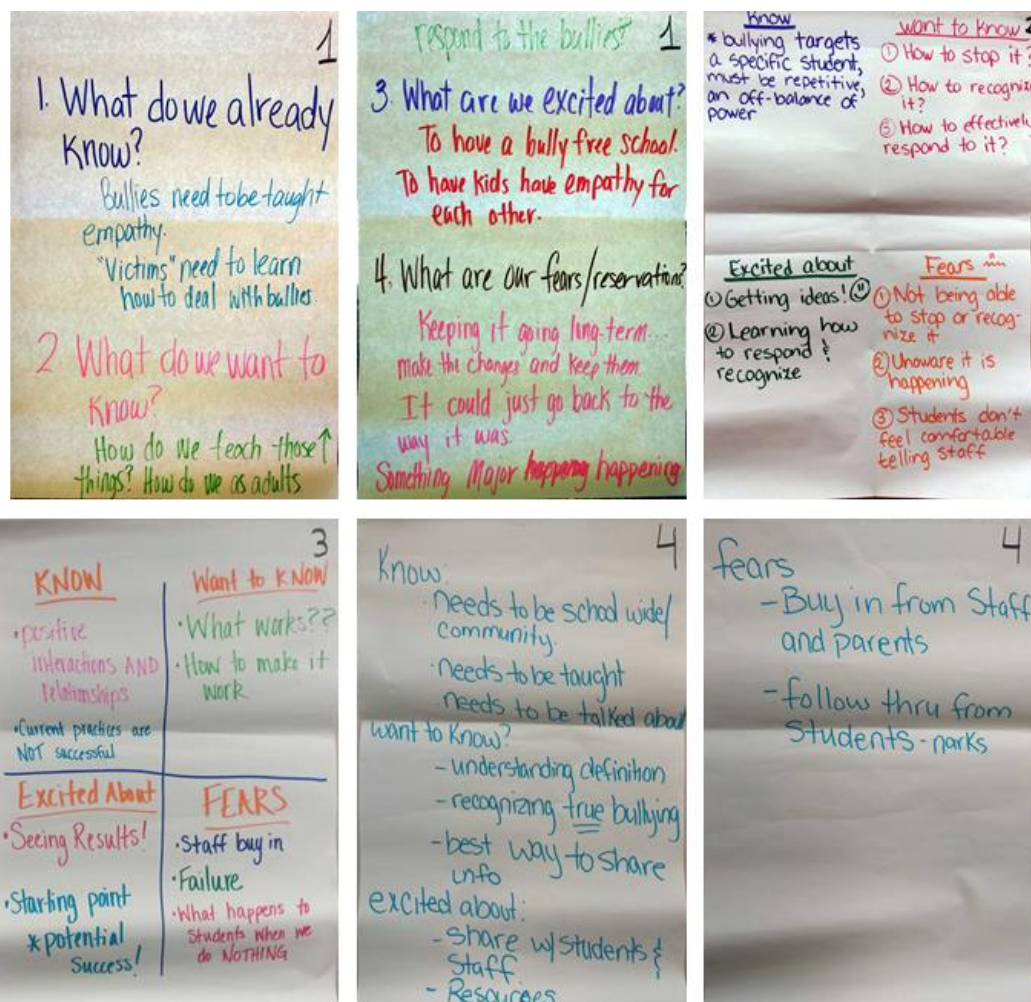 1
1. What do we already
know?
Bullies need to be taught
empathy.
"Victims" need to learn
how to deal with bullies
2 What do we want to
know?
How do we teach those ↑
things? How do we as adults
respond to the bullies?
1
3. What are we excited about?
To have a bully free school.
To have kids have empathy for
each other.
4. What are our fears/reservations?
Keeping it going long-term...
make the changes and keep them.
It could just go back to the
way it was.
Something Major happening happening
Know
* bullying targets
a specific student,
must be repetitive,
an off-balance of
power
want to know
2
① How to stop it?
② How to recognize
it?
③ How to effectively
respond to it?
Excited about
① Getting ideas!
② Learning how
to respond &
recognize
Fears
① Not being able
to stop or recog-
nize it
② Unaware it is
happening
③ Students don't
feel comfortable
telling staff
3
KNOW
• positive
interactions AND
relationships
• Current practices are
NOT successful
Want to KNOW
• What works??
• How to make it
work
Excited About
• Seeing Results!
• Starting point
* potential
Success!
FEARS
• Staff buy in
• Failure
• What happens to
students when we
do NOTHING
4
Know:
· needs to be school wide/
community.
· needs to be taught
· needs to be talked about
want to know?
- understanding definition
- recognizing true bullying
- best way to share
info
excited about:
- share w/ students &
staff
- Resources
4
fears
- Buy in from Staff
and parents
- follow thru from
Students - narks